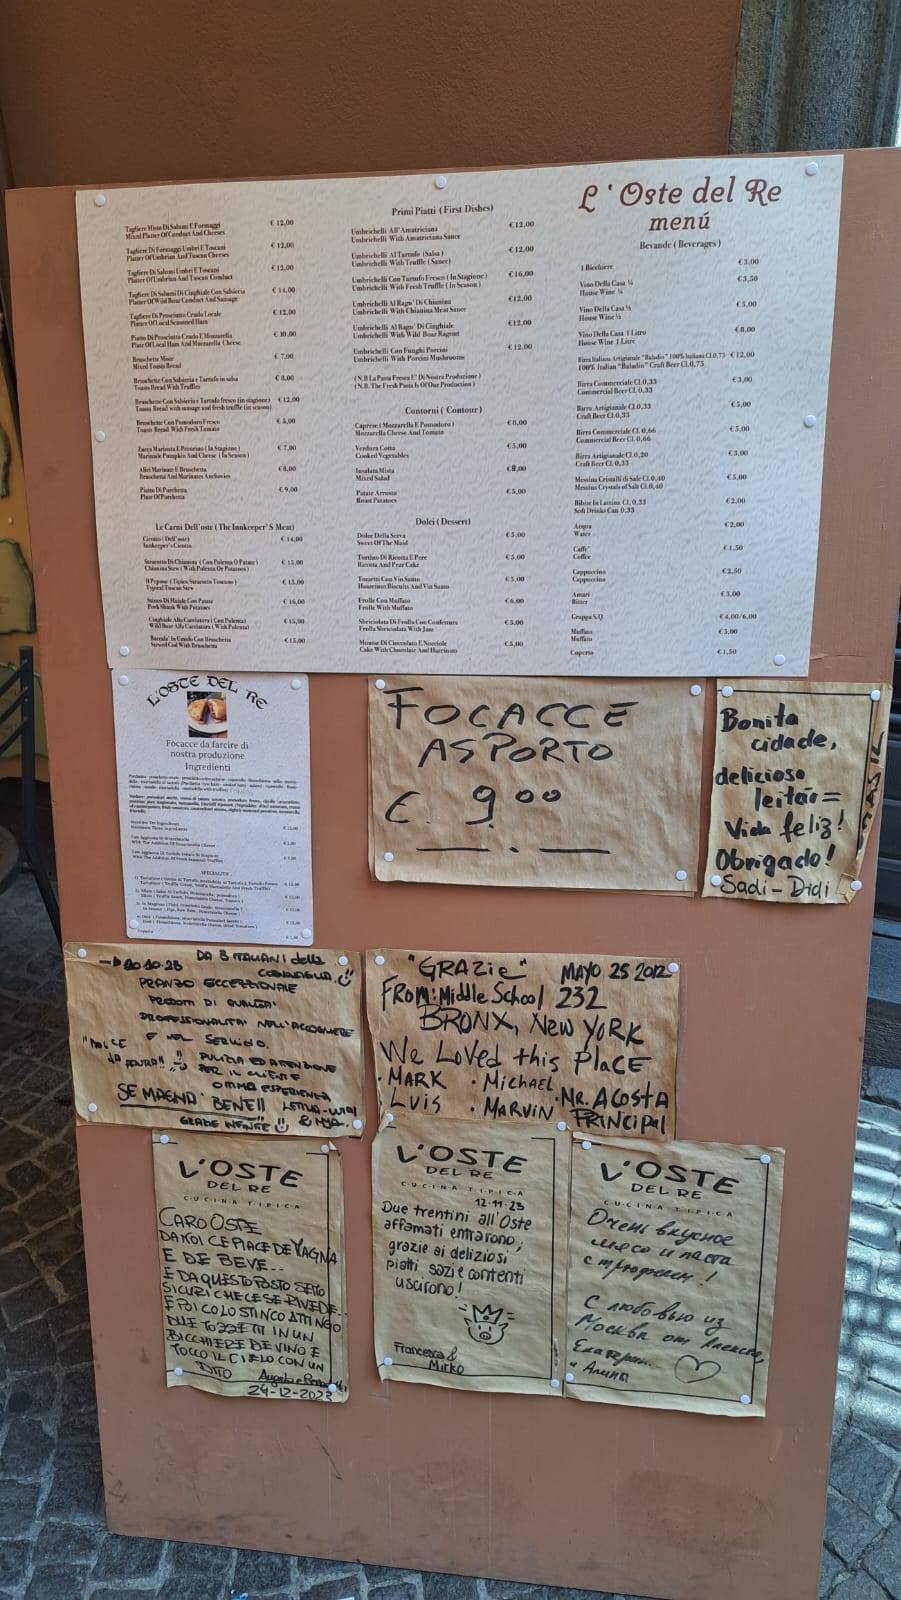 L'Oste del Re
menú
Tagliere Misto Di Salumi E Formaggi € 12,00
Mixed Platter Of Conduct And Cheeses
Tagliere Di Formaggi Umbri E Toscani € 12,00
Platter Of Umbrian And Tuscan Cheeses
Tagliere Di Salumi Umbri E Toscani € 12,00
Platter Of Umbrian And Tuscan Conduct
Tagliere Di Salumi Di Cinghiale Con Salsiccia € 14,00
Platter Of Wild Boar Conduct And Sausage
Tagliere Di Prosciutto Crudo Locale € 12,00
Platter Of Local Seasoned Ham
Piatto Di Prosciutto Crudo E Mozzarella € 10,00
Plate Of Local Ham And Mozzarella Cheese
Bruschette Miste € 7,00
Mixed Toasts Bread
Bruschette Con Salsiccia e Tartufo in salsa € 8,00
Toasts Bread With Truffles
Bruschette Con Salsiccia e Tartufo fresco (in stagione) € 12,00
Toasts Bread With sausage and fresh truffle (in season)
Bruschette Con Pomodoro Fresco € 5,00
Toasts Bread With Fresh Tomato
Zucca Marinata E Pecorino ( In Stagione ) € 7,00
Marinade Pumpkin And Cheese ( In Season )
Alici Marinate E Bruschetta € 8,00
Bruschetta And Marinates Anchovies
Piatto Di Porchetta € 9,00
Plate Of Porchetta
Le Carni Dell'oste ( The Innkeeper'S Meat)
( Dell'oste) € 14,00
Innkeeper's
Stracotto Di Chianina ( Con Polenta O Patate ) € 15,00
Chianina Stew ( With Polenta Or Potatoes )
Il Peposo ( Tipico Stracotto Toscano ) € 15,00
Typical Tuscan Stew
Stinco Di Maiale Con Patate € 16,00
Pork Shank With Potatoes
Cinghiale Alla Cacciatora ( Con Polenta) € 15,00
Wild Boar Alla Cacciatora ( With Polenta)
Baccala' In Umido Con Bruschetta € 15,00
Stewed Cod With Bruschetta
Primi Piatti ( First Dishes)
Umbrichelli All'Amatriciana € 12,00
Umbrichelli With Amatriciana Sauce
Umbrichelli Al Tartufo (Salsa) € 12,00
Umbrichelli With Truffle ( Sauce)
Umbrichelli Con Tartufo Fresco ( In Stagione ) € 16,00
Umbrichelli With Fresh Truffle ( In Season )
Umbrichelli Al Ragu' Di Chianina € 12,00
Umbrichelli With Chianina Meat Sauce
Umbrichelli Al Ragu' Di Cinghiale € 12,00
Umbrichelli With Wild Boar Ragout
Umbrichelli Con Funghi Porcini € 12,00
Umbrichelli With Porcini Mushrooms
( N.B La Pasta Fresca E' Di Nostra Produzione )
( N.B. The Fresh Pasta Is Of Our Production )
Contorni ( Contour )
Caprese ( Mozzarella E Pomodoro ) € 8,00
Mozzarella Cheese And Tomato
Verdura Cotta € 5,00
Cooked Vegetables
Insalata Mista € 8,00
Mixed Salad
Patate Arrosto € 5,00
Roast Potatoes
Dolci (Dessert)
Dolce Della Serva € 5,00
Sweet Of The Maid
Tortino Di Ricotta E Pere € 5,00
Ricotta And Pear Cake
Tozzetti Con Vin Santo € 5,00
Hazelnut Biscuits And Vin Santo
Frolle Con Muffato € 6,00
Frolle With Muffato
Sbriciolata Di Frolla Con Confettura € 5,00
Frolla Sbriciolata With Jam
Mousse Di Cioccolato E Nocciole € 5,00
Cake With Chocolate And Hazelnuts
Bevande ( Beverages )
1 Bicchiere € 3,00
Vino Della Casa ¼ € 3,50
House Wine ¼
Vino Della Casa ½ € 5,00
House Wine ½
Vino Della Casa 1 Litro € 8,00
House Wine 1 Litre
Birra Italiana Artigianale "Baladin" 100% Italiana Cl.0,75 € 12,00
100% Italian "Baladin" Craft Beer Cl.0,75
Birra Commerciale Cl.0,33 € 3,00
Commercial Beer Cl.0,33
Birra Artigianale Cl.0,33 € 5,00
Craft Beer Cl.0,33
Birra Commerciale Cl. 0,66 € 5,00
Commercial Beer Cl.0,66
Birra Artigianale Cl.0,20 € 3,00
Craft Beer Cl. 0,33
Messina Cristalli di Sale Cl.0,40 € 5,00
Messina Crystals of Salt Cl.0,40
Bibite In Lattina Cl. 0,33 € 2,00
Soft Drinks Can 0,33
Acqua € 2,00
Water
Caffe' € 1,50
Coffee
Cappuccino € 2,50
Cappuccino
Amari € 3,00
Bitter
Grappa S.Q. € 4,00/6,00
Muffato € 5,00
Muffato
Coperto € 1,50
L'OSTE DEL RE
Focacce da farcire di
nostra produzione
Ingredienti
SPECIALITÀ
FOCACCE
ASPORTO
€. 9.00
Bonita
cidade,
delicioso
leitão =
Vida feliz!
Obrigado!
Sadi - Didi
BRASIL
20.10.23 DA 3 ITALIANI della
PRANZO ECCEZIONALE
PRODOTTI DI QUALITA'
PROFESSIONALITA' NELL'ACCOGLIERE
E NEL SERVIZIO.
PULIZIA ED ATTENZIONE
PER IL CLIENTE
OTTIMA ESPERIENZA
SE MAGNA BENE!!
GRAZIE INFINITE
"GRAZIE" MAYO 25 2012
FROM: Middle School 232
BRONX, NEW YORK
We LOVED this PLACE
· MARK · Michael
LUIS · MARVIN · MR. ACOSTA
PRINCIPAL
L'OSTE
DEL RE
CUCINA TIPICA
CARO OSTE
DA NOI CE PIACE DE MAGNA
E DE BEVE..
E DA QUESTO POSTO SETO
SICURI CHE CE SE RIVEDE..
E POI COLO STINCO ATTINGO
DUE TOZZETTI IN UN
BICCHIERE DE VINO E
TOCCO IL CIELO CON UN
DITO
24-12-2023
L'OSTE
DEL RE
CUCINA TIPICA
12·11·23
Due trentini all'Oste
affamati entrarono;
grazie ai deliziosi
piatti sazi e contenti
uscirono!
Francesca &
Mirko
L'OSTE
DEL RE
CUCINA TIPICA
Очень вкусное
мясо и паста
с трюфелем!
С любовью из
Москвы от Алексея,
Екатерин..
и Алины